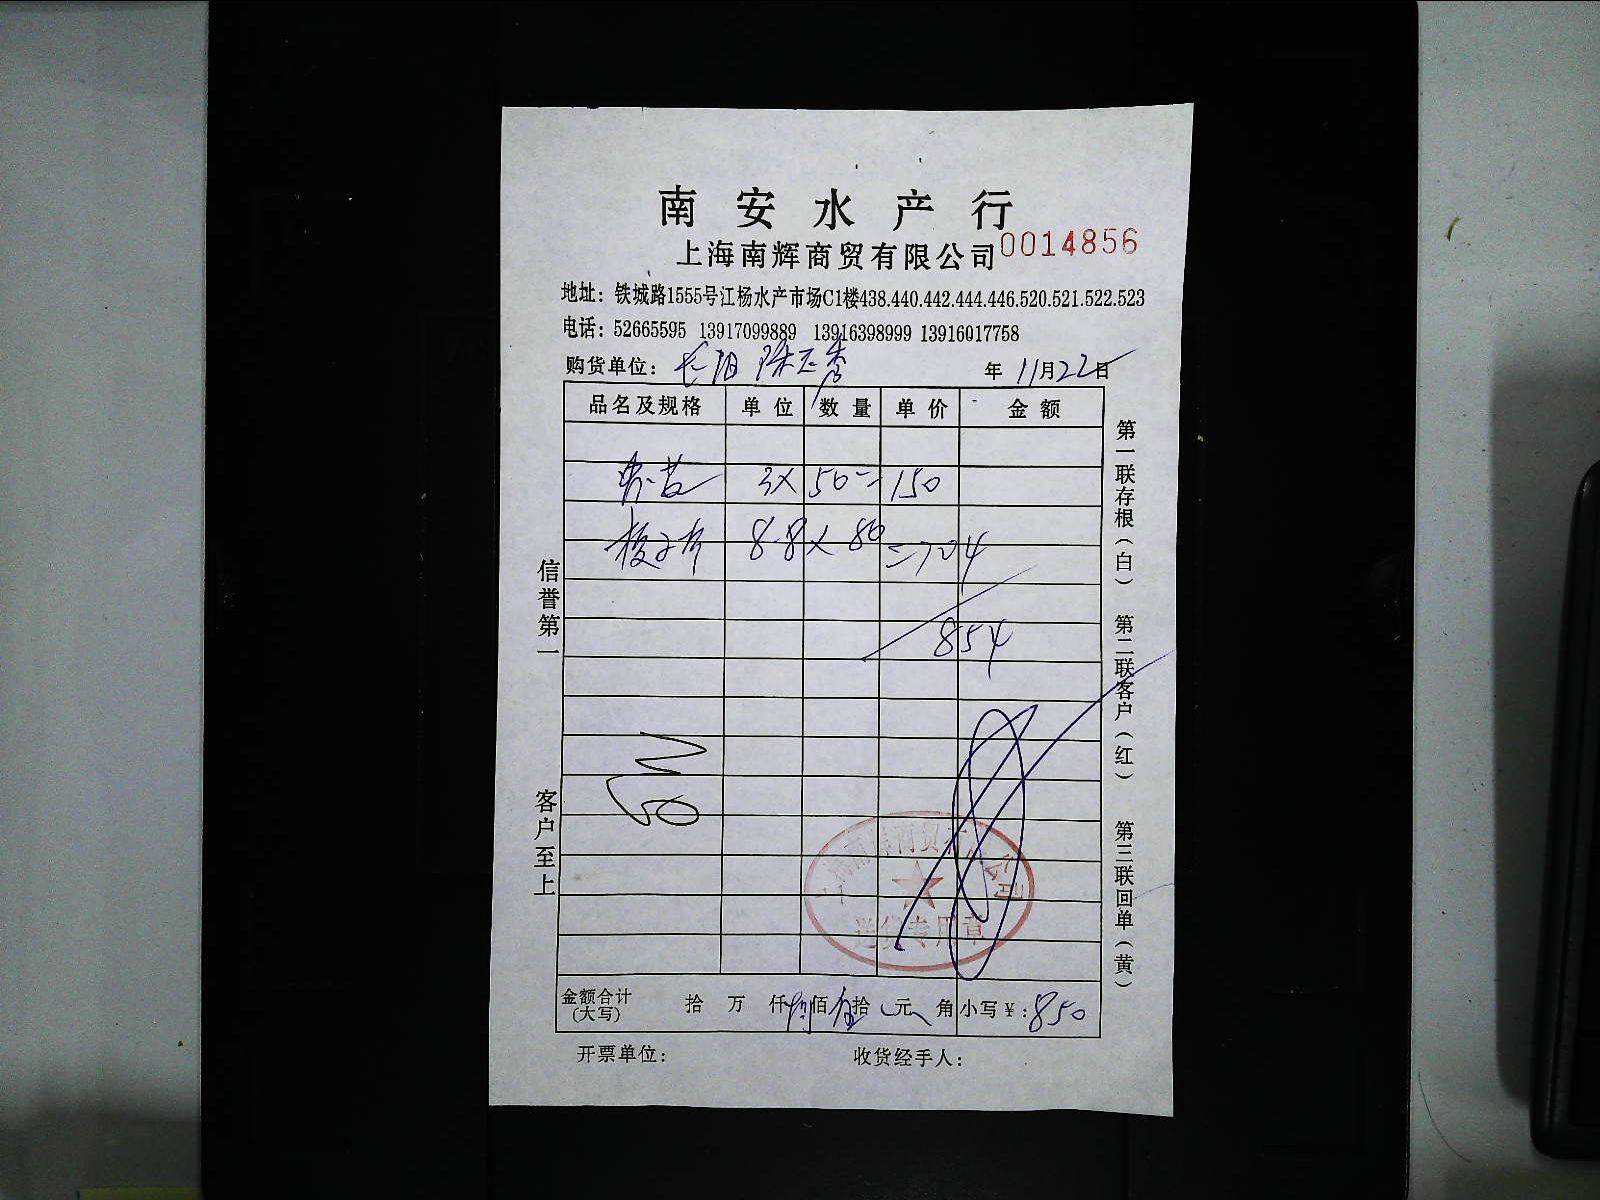 南安水产行
上海南辉商贸有限公司 0014856
地址：铁城路1555号江杨水产市场C1楼438.440.442.444.446.520.521.522.523
电话：52665595 13917099889 13916398999 13916017758
购货单位： 年 11月22日
品名及规格 单位 数量 单价 金额
3× 50=150
梭子 8.8× 80 =704
854
信誉第一
客户至上
第一联存根（白）
第二联客户（红）
第三联回单（黄）
上海南辉商贸有限公司
送货专用章
金额合计（大写） 拾 万 仟 捌佰 伍拾 元 角 小写￥：850
开票单位： 收货经手人：